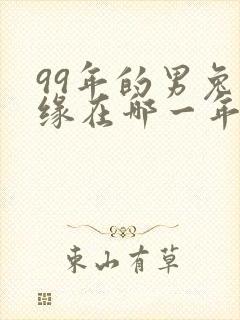 99年的男兔
缘在哪一年
东山有草